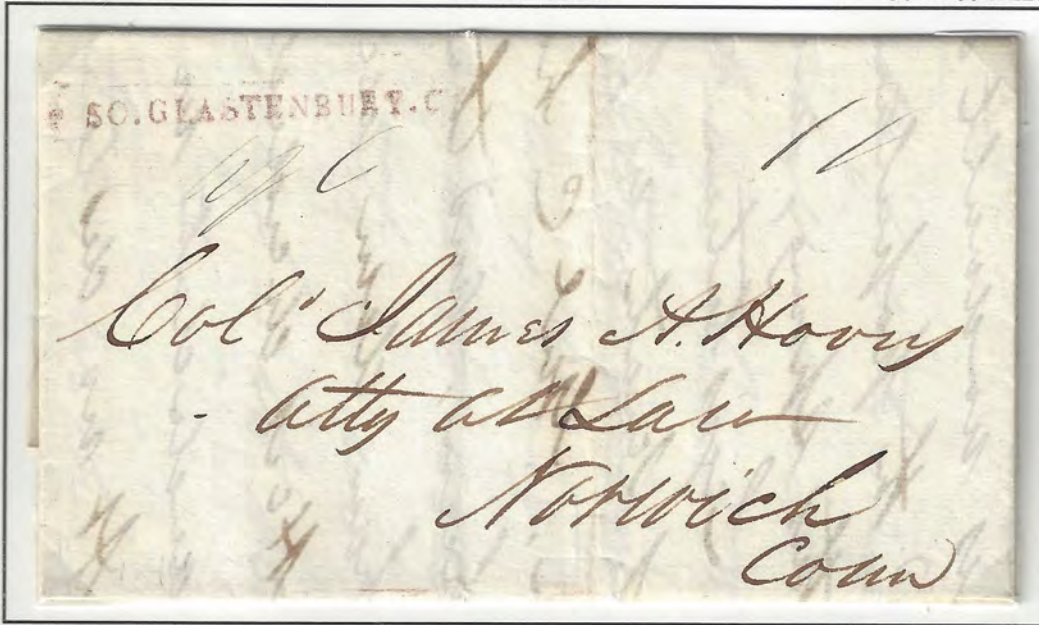 SO. GLASTENBURY. C
10
Col. James A. Hovey
Atty at Law
Norwich
Conn